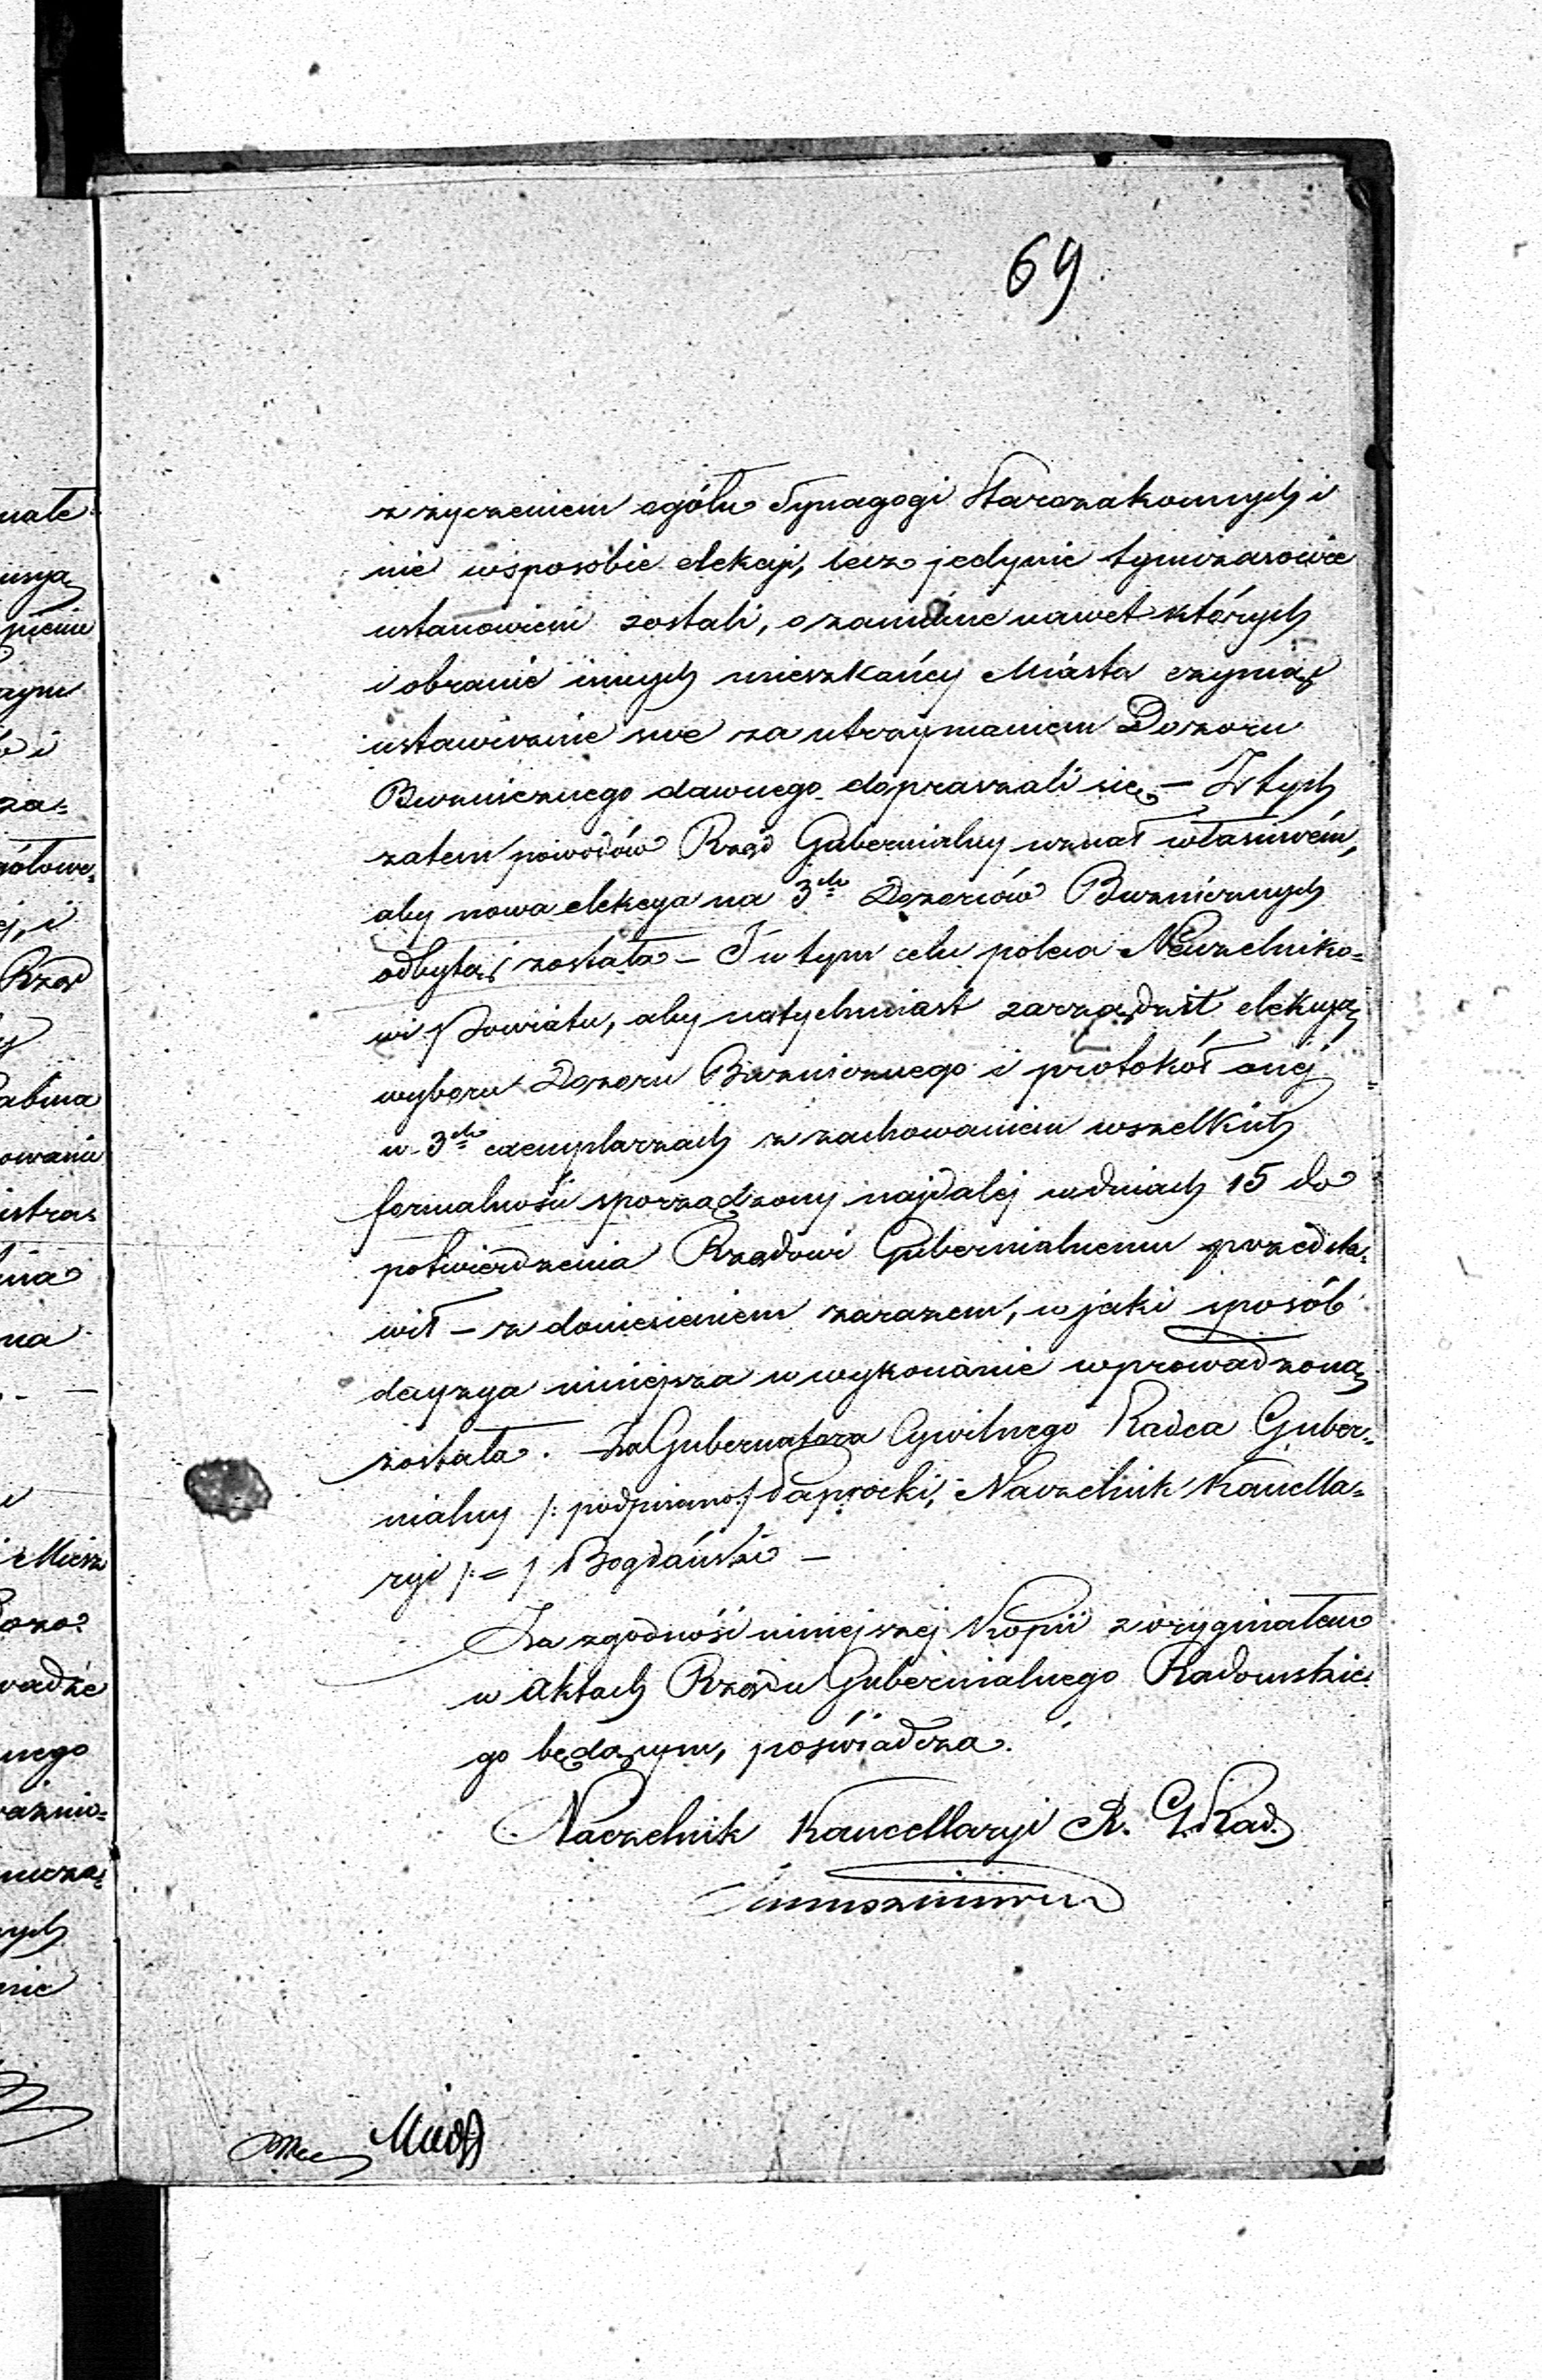 69
z życzeniem ogółu Synagogi Starozakonnych i
nie wsposobie elekcyi, lecz jedynie tymczasowie
ustanowieni zostali, o zamianę nawet których
i obranie innych mieszkańcy Miasta czyniąc
ustawicznie swe za utrzymaniem Dozoru
Bużniczego dawnego dopraszali się – Z tych
zatem powodów Rząd Gubernialny uznał właściwém,
aby nowa elekcya na 3ch Dozorców Bużnicznych
odbytą została – I w tym celu poleca Naczelniko=
wi Powiatu, aby natychmiast zarządził elekcyą
wyboru Dozoru Bużnicznego i protokół onéj
w 3ch exemplarzach z zachowaniem wszelkich
formalności sporządzony najdalej w dniach 15 do
potwierdzenia Rządowi Gubernialnemu przedsta=
wił – z doniesieniem zarazem, w jaki sposób
decyzya niniejsza w wykonanie wprowadzoną
została. Za Gubernatora Cywilnego Radca Guber=
nialny /: podpisano :/ Paprocki, Naczelnik Kancella=
ryi /: = / Bogdański –
Za zgodność niniejszej Kopii z oryginałem
w Aktach Rządu Gubernialnego Radomskie=
go będącym, poświadcza.
Naczelnik Kancellaryi R. G. Rad.